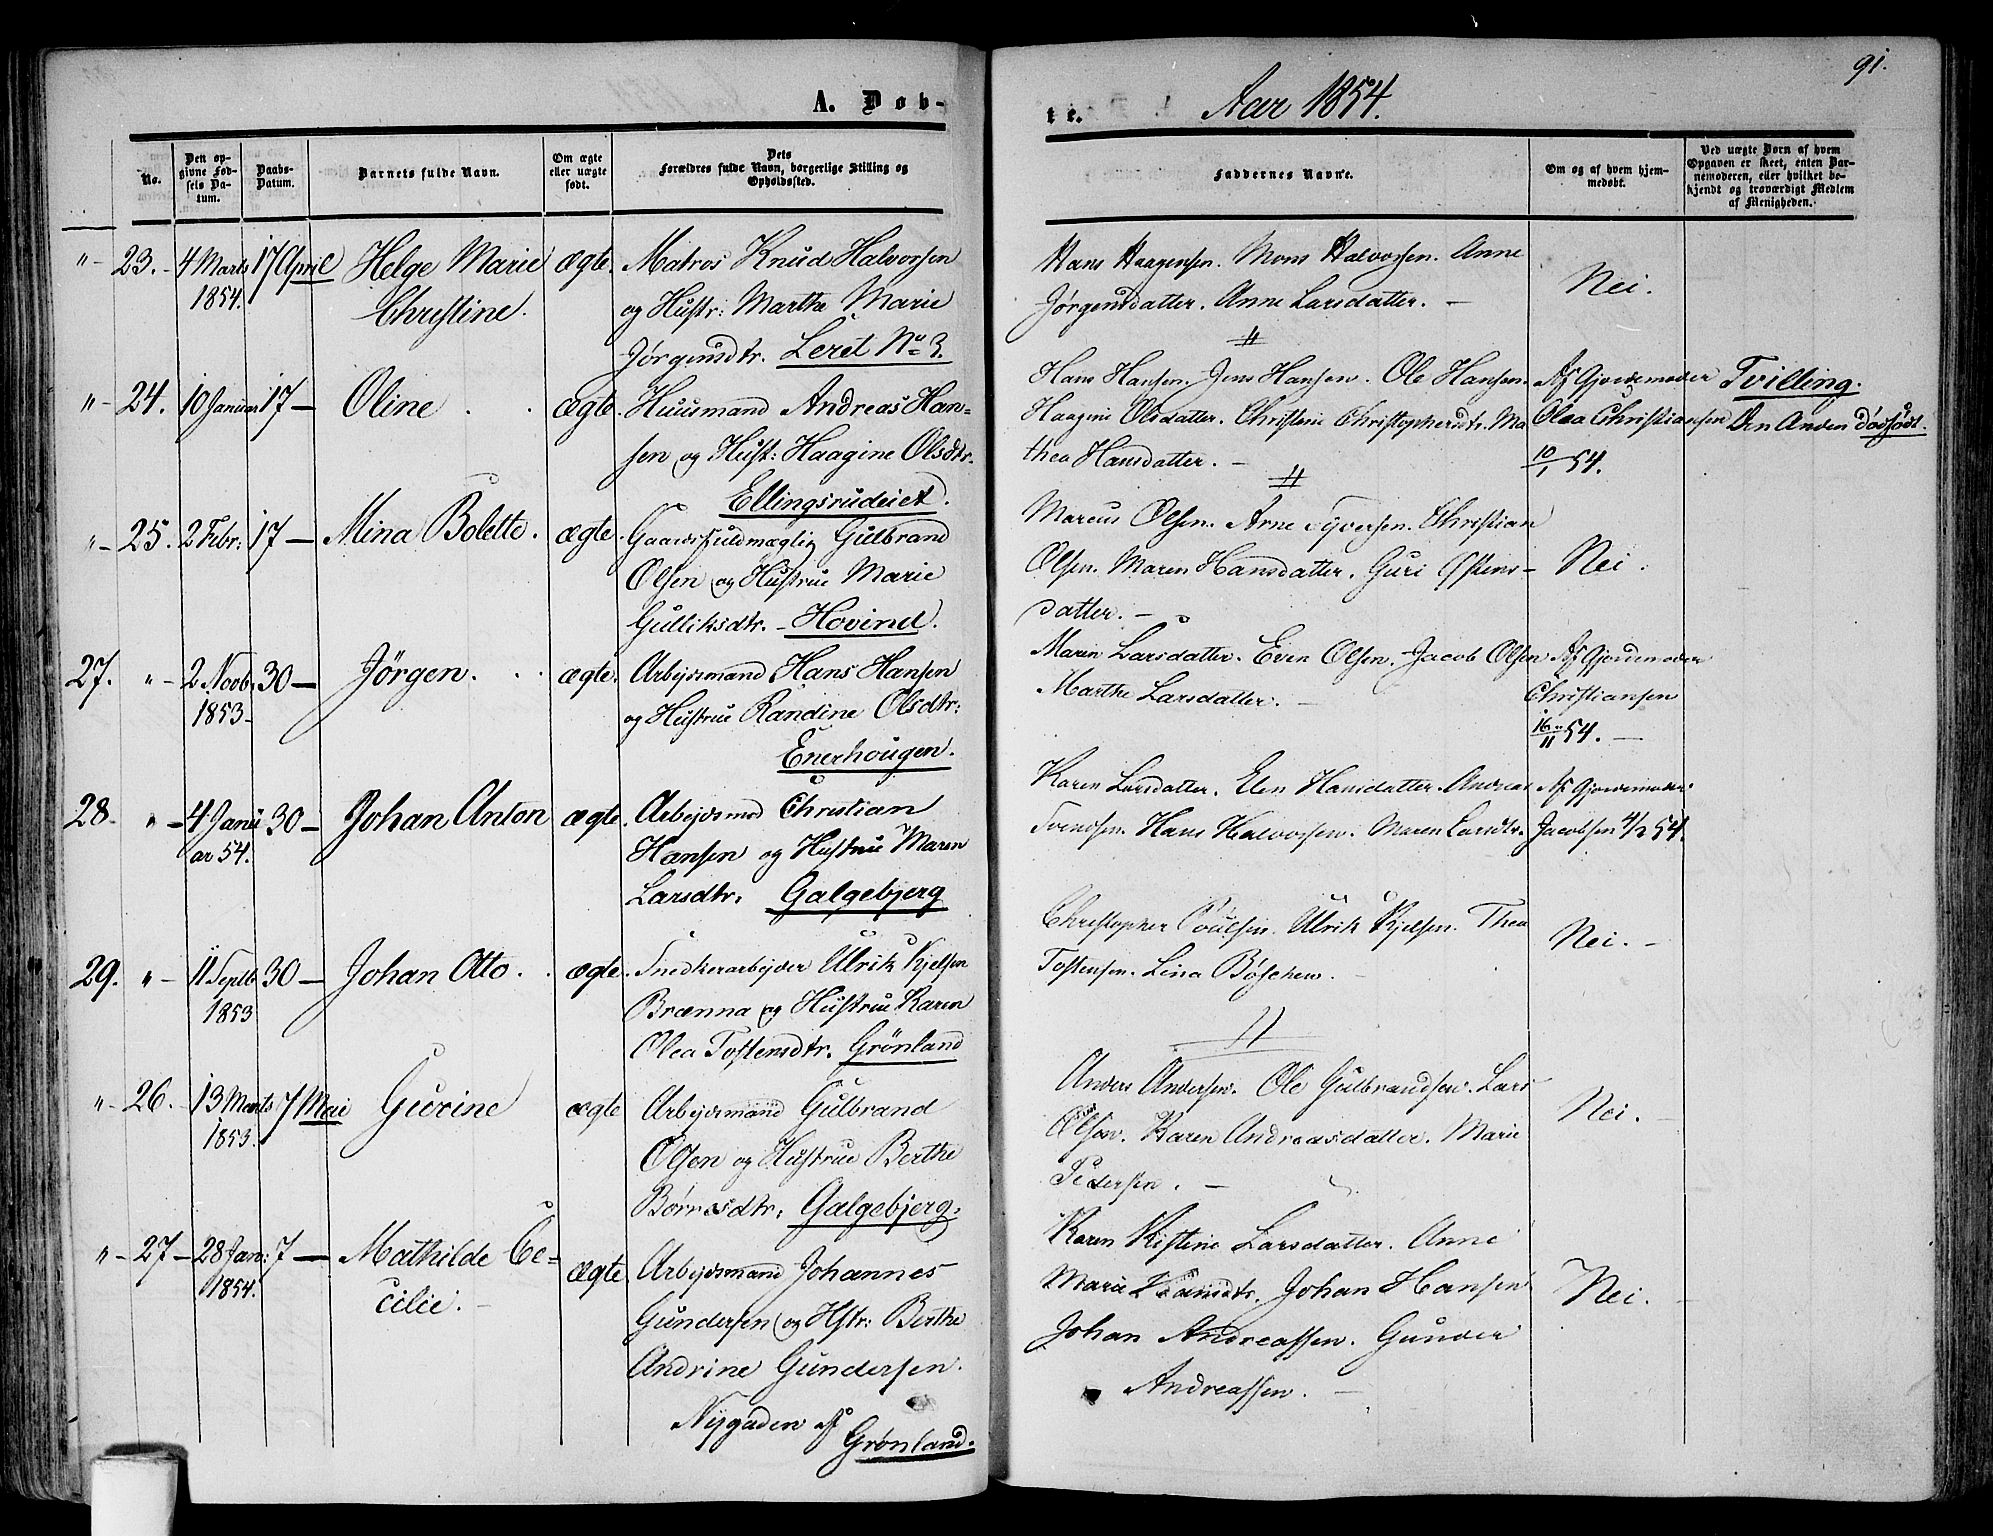 A. Døb-
No.
Den op-
givne Fød-
sels Da-
tum.
Daabs-
Datum.
Barnets fulde Navn.
Om ægte
eller uægte
født.
Dets
Forældres fulde Navn, borgerlige Stilling og
Opholdssted.
„ - 23. - 4 Marts 17 April Helge Marie ægte. Matros Knud Halvorsen
1854. Christine. og Hustr: Marthe Marie
Jørgensdtr. Leret No 3.
„ - 24. 10 Januar 17 — Oline . . ægte. Huusmand Andreas Han-
sen og Hust: Haagine Olsdtr.
Ellingsrudeiet.
„ - 25. 2 Febr: 17 — Mina Bolette. ægte. Gaardsfuldmægtig Gulbrand
Olsen og Hustrue Marie
Gulliksdtr. - Hovind.
27. „ - 2 Novb. 30 — Jørgen. . . ægte. Arbejdsmand Hans Hansen
1853 - og Hustrue Randine Olsdtr:
Enerhougen.
28. „ - 4 Janu 30 - Johan Anton ægte. Arbejdsmd Christian
ar 54. Hansen og Hustrue Maren
Larsdtr. Galgebjerg
29. „ - 11 Septb 30 — Johan Otto. . ægte. Snedkerarbejder Ulrik Kjelsen
1853 Brænna og Hustrue Karen
Olea Tostensdtr. Grønland
„ - 26. 13 Marts 7 Mai Gurine ægte Arbejdsmand Gulbrand
1853. Olsen og Hustrue Berthe
Børresdtr. Galgebjerg.
„ - 27 - 28 Jan: 7 — Mathilde Ce- ægte Arbejdsmand Johannes
1854. cilie. - Gundersen og Hstr: Berthe
Andrine Gundersen.
Nygaden af
Grønland.
te. Aar 1854. 91.
Faddernes Navne.
Om og af hvem hjem-
medøbt.
Ved uægte Børn af hvem
Opgaven er skeet, enten Bar-
nemoderen, eller hvilket be-
kjendt og troværdigt Medlem
af Menigheden.
Hans Haagensen. Mons Halvorsen. Anne
Jørgensdatter. Anne Larsdatter. — Nei.
Hans Hansen. Jens Hansen. Ole Hansen. Af Gjordemoder Tvilling.
Haagine Olsdatter. Christine Christophersdtr. Ma Olea Christiansen Den Anden dødfødt.
thea Hansdatter. - 10/1 54.
Marcus Olsen. Arne Syversen. Christian
Olsen. Maren Hansdatter. Guri Ostens- Nei.
datter. -
Maren Larsdatter. Even Olsen. Jacob Olsen Af Gjordemoder
Marthe Larsdatter. - Christiansen
16/11 54. —
Karen Larsdatter. Elen Hansdatter. Andreas Af Gjordemoder
Svendsen. Hans Halvorsen. Maren Larsdtr. Jacobsen 4/2 54.
Christopher Poulsen. Ulrik Kjelsen. Thea Nei. -
Tostensen. Lina Böschen. -
Anders Andersen. Ole Gulbrandsen. Lars
Olsen. Karen Andreasdatter. Marie Nei. -
Pedersen. -
Karen Kistine Larsdatter. Anne
Marie Hansdtr. Johan Hansen Nei. -
Johan Andreassen. Gunder
Andreassen. —